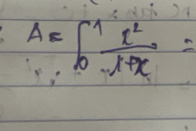 A = ∫₀¹ x²/(1+x) =